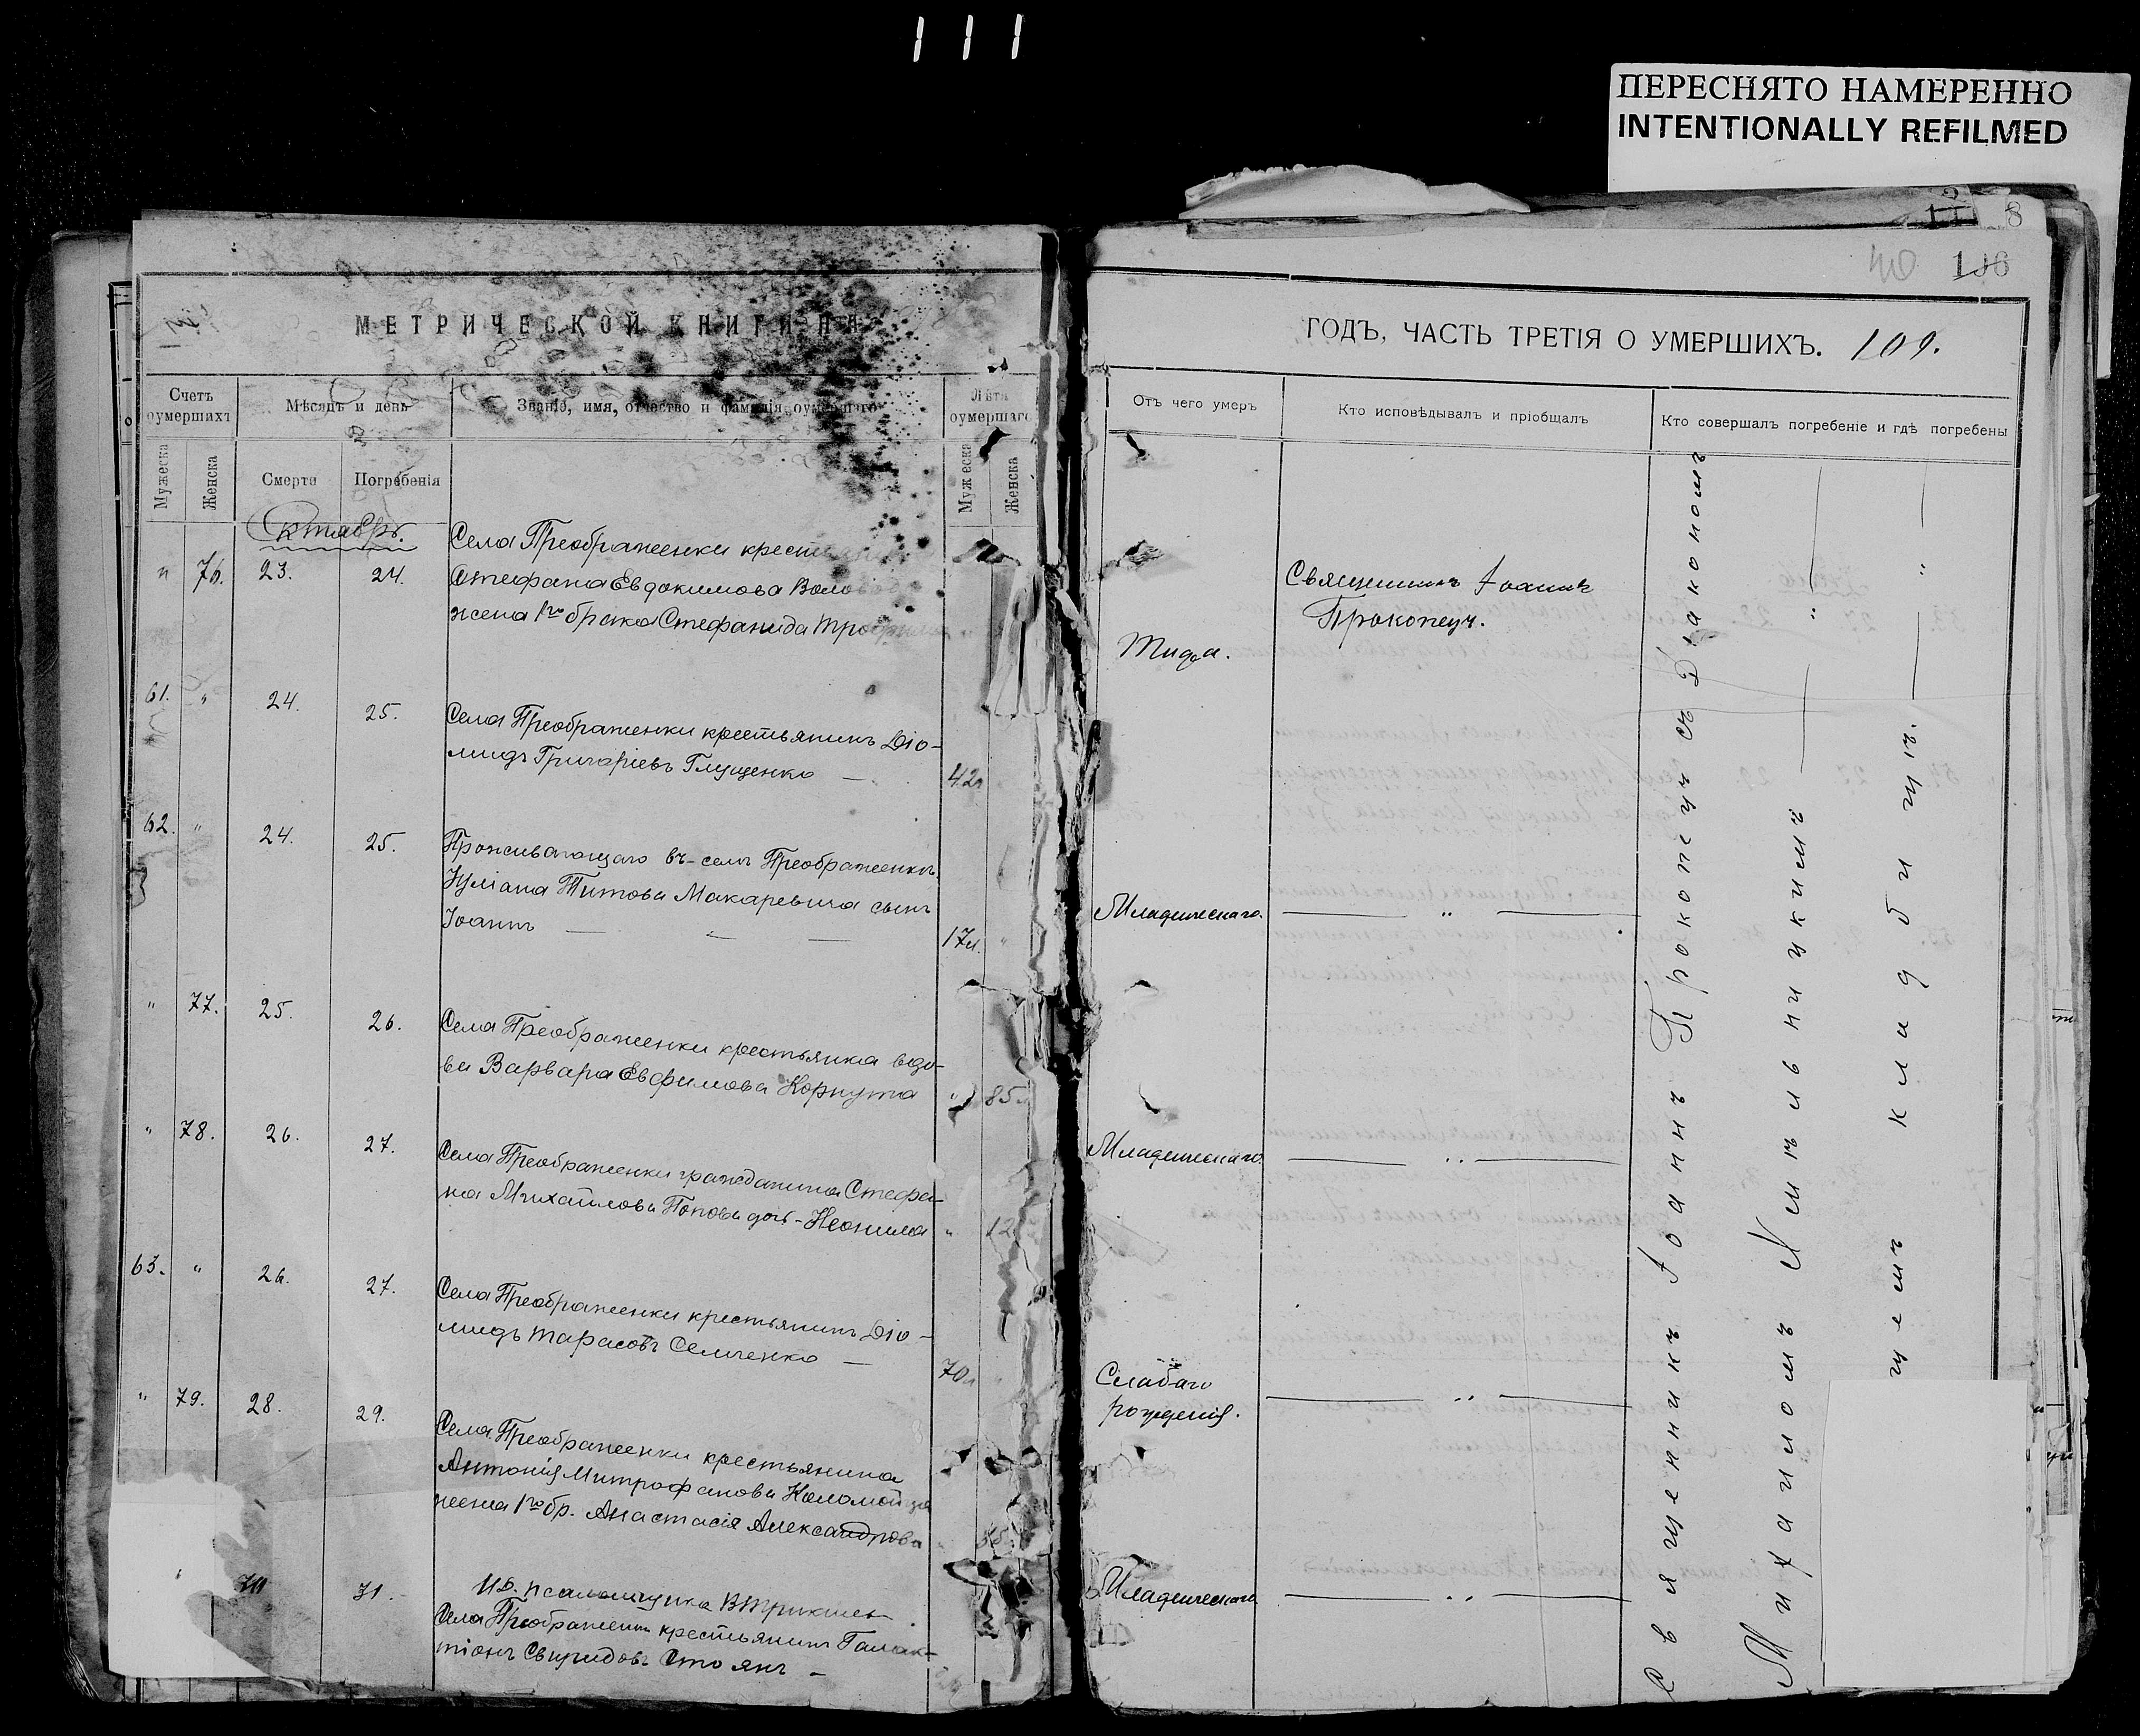 111
ПЕРЕСНЯТО НАМЕРЕННО
INTENTIONALLY REFILMED
8
40 106
МЕТРИЧЕСКОЙ КНИГИ НА
ГОДЪ, ЧАСТЬ ТРЕТІЯ О УМЕРШИХЪ. 109.
Счетъ оумершихъ
Мѣсяцъ и день
Званіе, имя, отчество и фамилія оумершаго
Лѣта оумершаго
Мужеска
Женска
Смерти
Погребенія
Мужеска
Женска
Октябрь.
" 76. 23. 24.
Села Преображенки
Стефана Евдокимова
жена 1го брака Стефанида
61. " 24. 25.
Села Преображенки крестьянинъ Діо-
мидъ Григоріевъ Глущенко —
42л
62. " 24. 25.
Проживающаго въ селѣ Преображенкѣ
Іуліана Титова Макаревича сынъ
Іоаннъ — — —
17л. "
" 77. 25. 26.
Села Преображенки крестьянка вдо-
ва Варвара Евфимова Корнута
" 85
" 78. 26. 27.
Села Преображенки гражданина Стефа-
на Михайлова Попова доч- Неонила
" 12
63. " 26. 27.
Села Преображенки крестьянинъ Діо-
мидъ Тарасовъ Семченко —
70л
" 79. 28. 29.
Села Преображенки крестьянина
Антонія Митрофанова
жена 1го бр. Анастасія Александрова
31.
И.д. псаломщика
Села Преображенки крестьянинъ Галак-
тіонъ Свиридовъ Стоянъ —
Отъ чего умеръ
Кто исповѣдывалъ и пріобщалъ
Кто совершалъ погребеніе и гдѣ погребены
Священникъ Іоаннъ
Прокопеуч.
Младенческаго. — " —
Младенческаго. — " —
Слабаго
рожденія. — " —
Младенческаго — " —
Священникъ Іоаннъ Прокопеуч съ Діакономъ
Михаиломъ Хмѣльницкимъ — " —
кладбищѣ. — " —